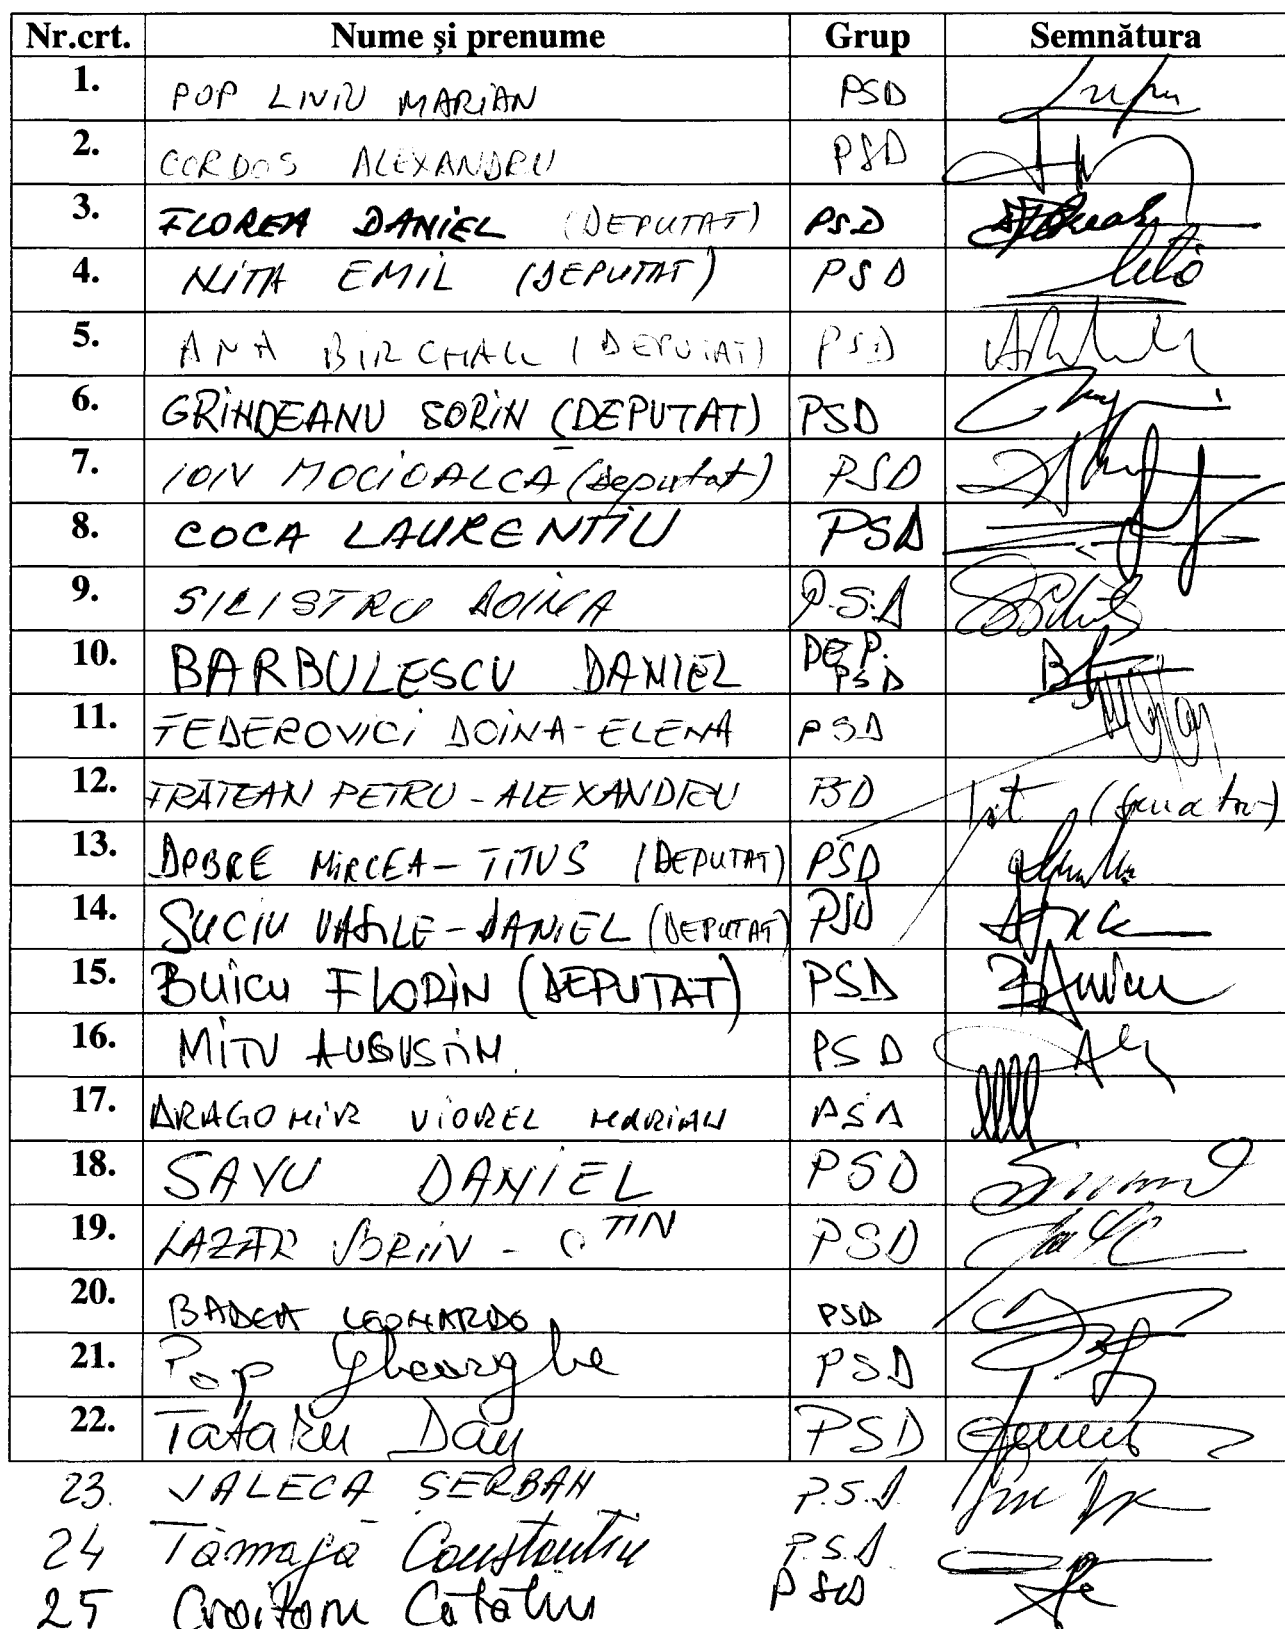 Nr.crt. Nume și prenume Grup Semnătura
1. POP LIVIU MARIAN PSD
2. CORDOS ALEXANDRU PSD
3. FLOREA DANIEL (DEPUTAT) PSD
4. NITA EMIL (DEPUTAT) PSD
5. ANA BIRCHALL (DEPUTAT) PSD
6. GRINDEANU SORIN (DEPUTAT) PSD
7. ION MOCIOALCĂ (Deputat) PSD
8. COCA LAURENTIU PSD
9. SILISTRU DOINA P.S.D
10. BARBULESCU DANIEL DEP. PSD
11. FEDEROVICI DOINA-ELENA PSD
12. FRĂTEAN PETRU-ALEXANDRU PSD (senator)
13. DOBRE MIRCEA-TITUS (DEPUTAT) PSD
14. SUCIU VASILE-DANIEL (DEPUTAT) PSD
15. BUICU FLORIN (DEPUTAT) PSD
16. MITU AUGUSTIN PSD
17. DRAGOMIR VIOREL MARIAN PSD
18. SAVU DANIEL PSD
19. LAZAR SORIN - C TIN PSD
20. BADEA LEONARDO PSD
21. Pop Gheorghe PSD
22. Tataru Dan PSD
23. VALECA SERBAN P.S.D.
24 Tămagă Constantin P.S.D
25 Croitoru Cătălin PSD